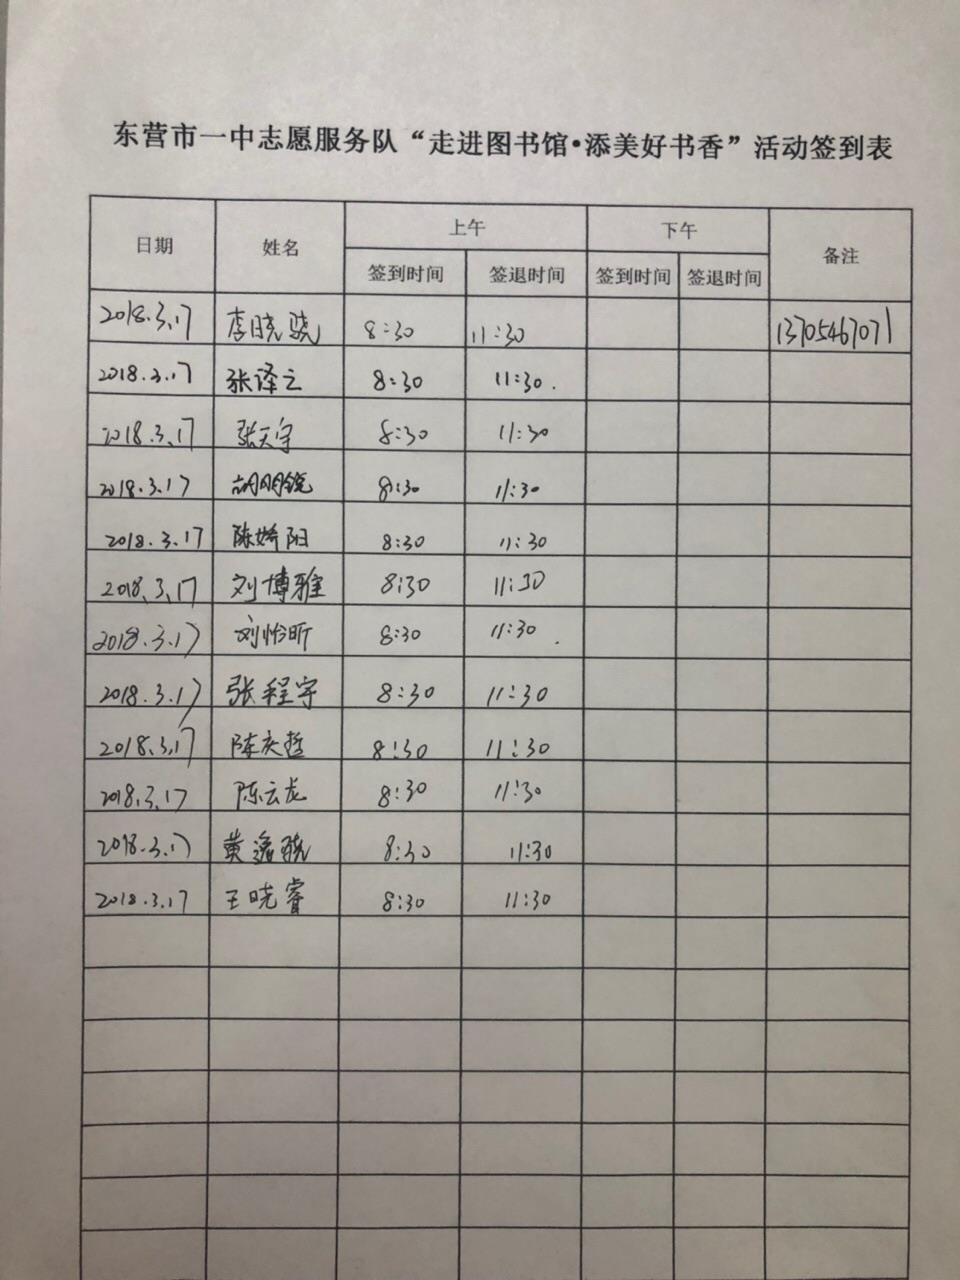 东营市一中志愿服务队“走进图书馆•添美好书香”活动签到表
日期 姓名 上午 下午 备注
签到时间 签退时间 签到时间 签退时间
2018.3.17 李晓骁 8:30 11:30 13705467071
2018.3.17 张译之 8:30 11:30.
2018.3.17 张天宇 8:30 11:30
2018.3.17 胡明锐 8:30 11:30
2018.3.17 陈娇阳 8:30 11:30
2018.3.17 刘博雅 8:30 11:30
2018.3.17 刘怡昕 8:30 11:30
2018.3.17 张程宇 8:30 11:30
2018.3.17 陈庆哲 8:30 11:30
2018.3.17 陈云龙 8:30 11:30
2018.3.17 黄逸骁 8:30 11:30
2018.3.17 王晓睿 8:30 11:30